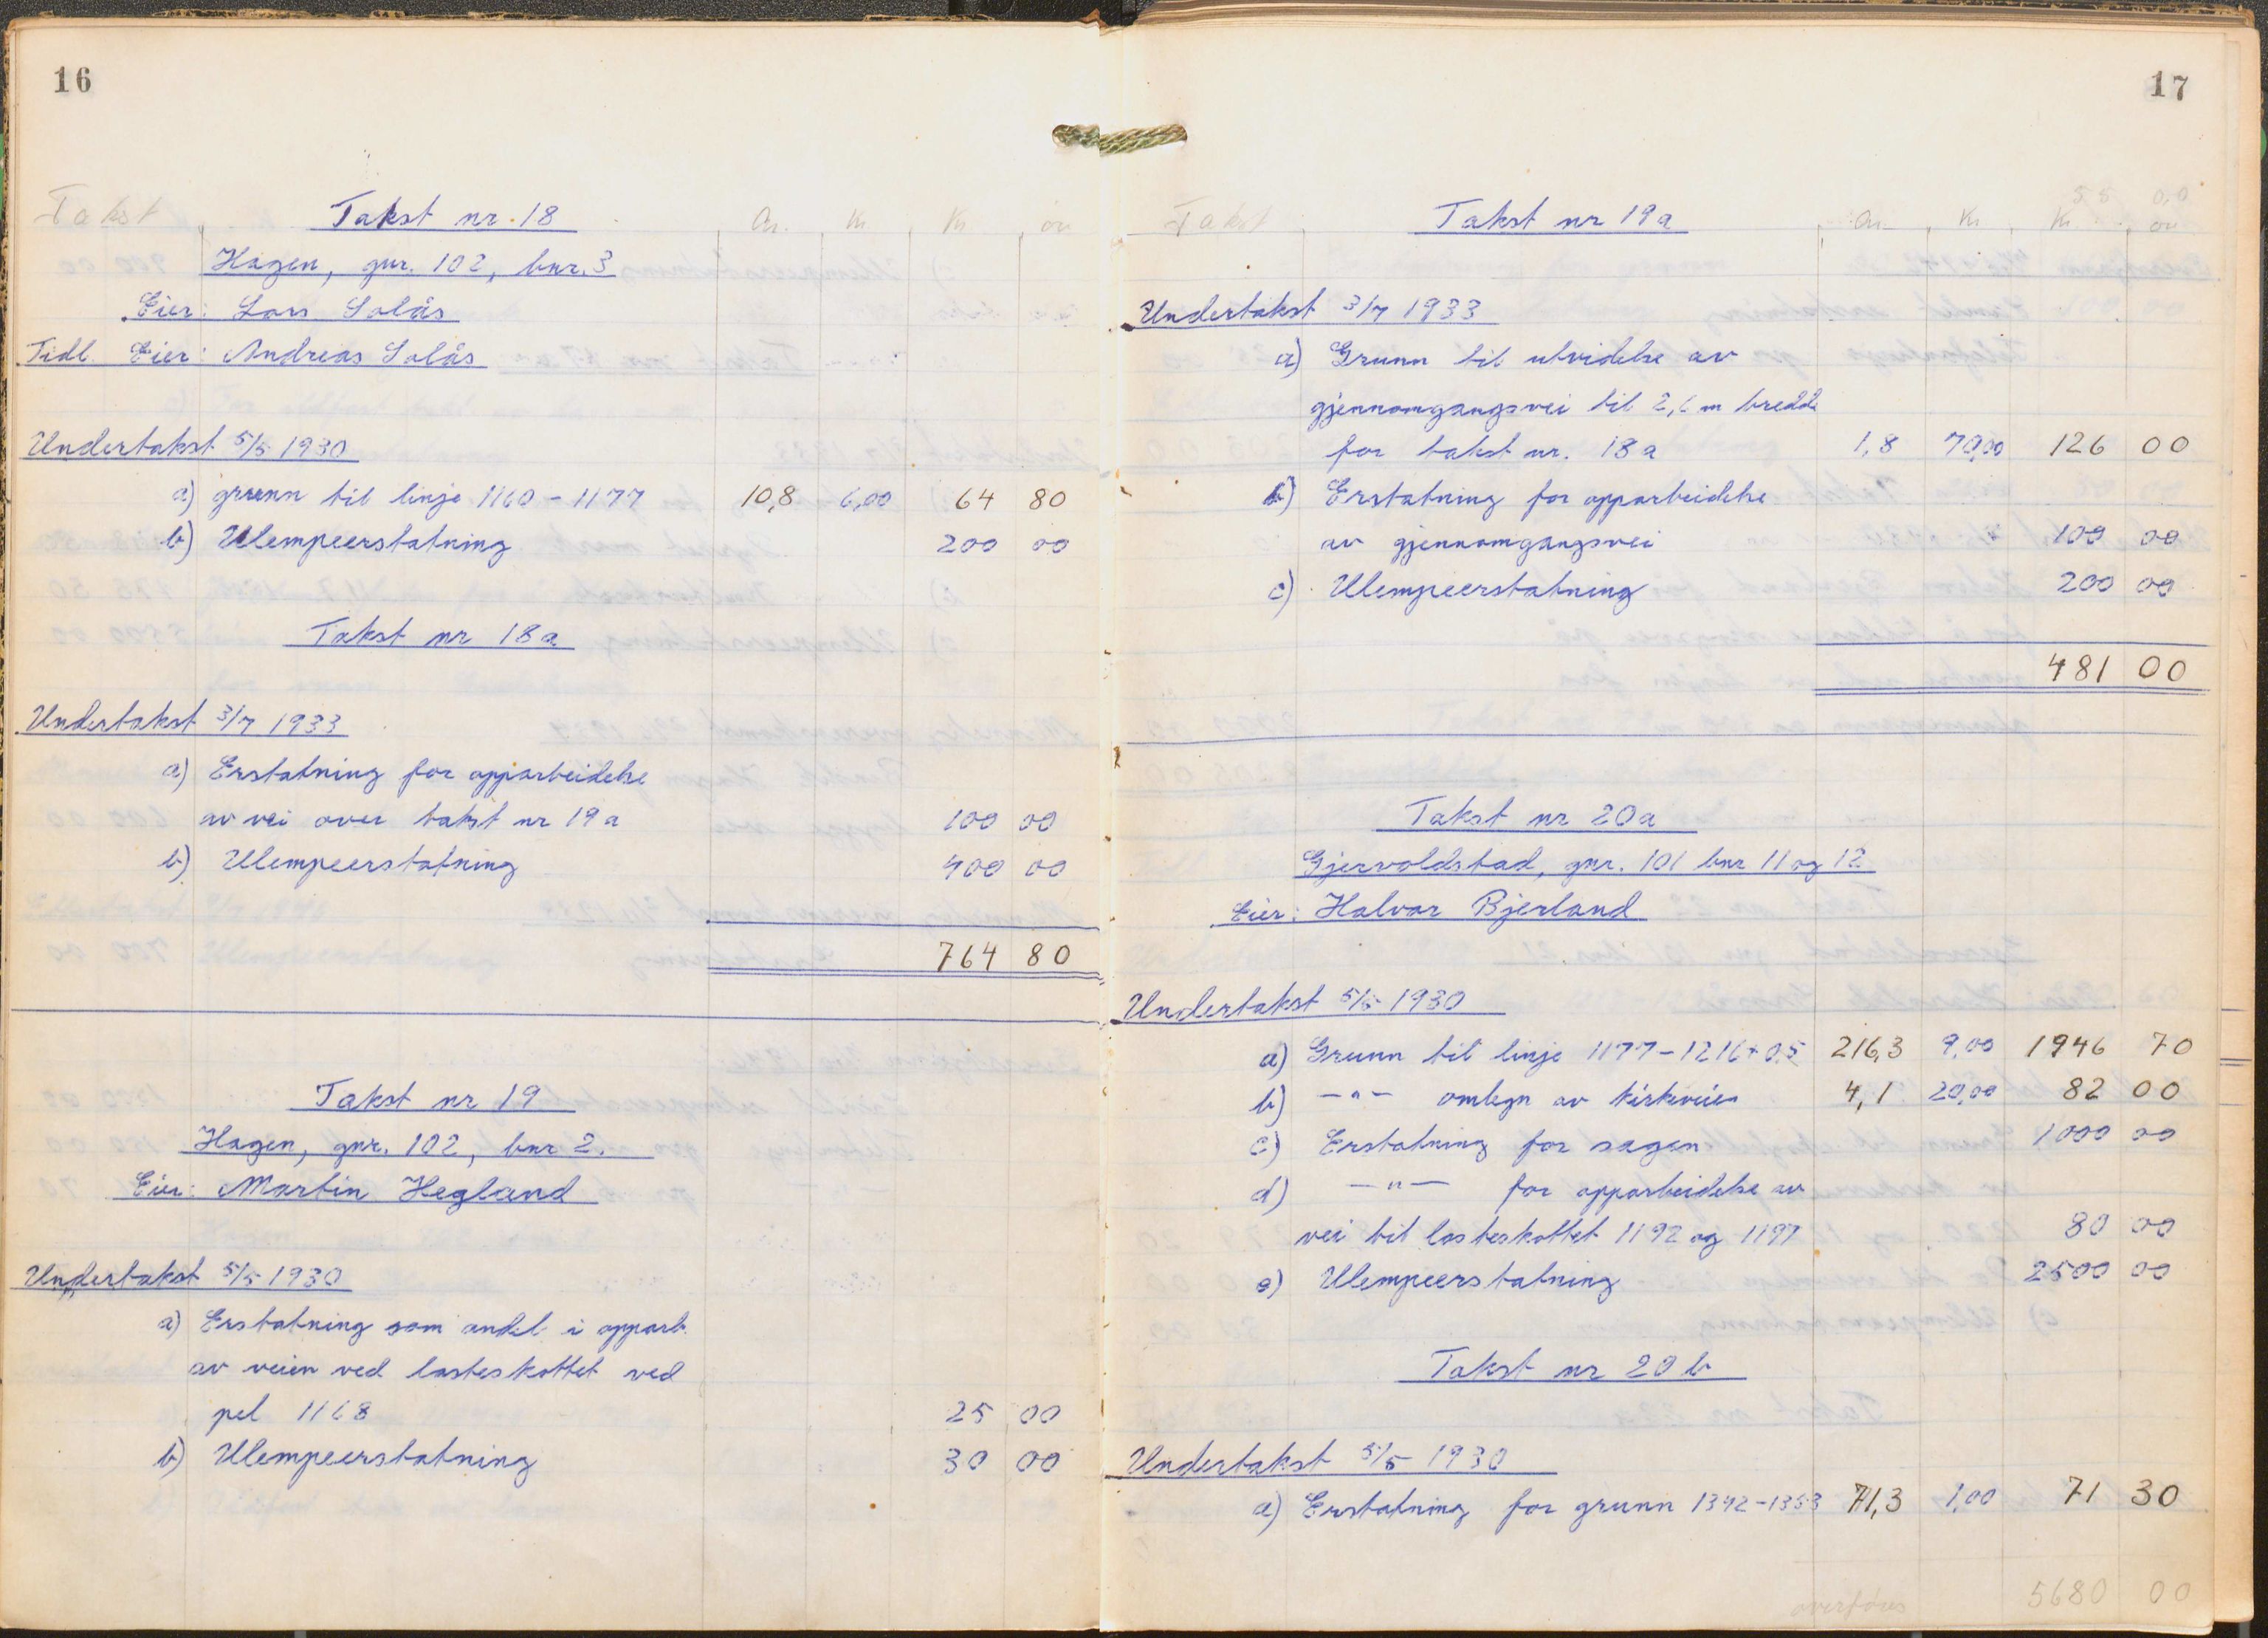 16
Takst Takst nr. 18 Ar. Kr Kr øre
Hagen, gnr. 102, bnr. 3
Eier: Lars Solås
Tidl. Eier: Andreas Solås
Undertakst 5/5 1930
a) grunn til linje 1160 - 1177 10,8 6,00 64 80
b) Ulempeerstatning 200 00
Takst nr 18a
Undertakst 3/7 1933
a) Erstatning for opparbeidelse
av vei over takst nr 19a 100 00
b) Ulempeerstatning 400 00
764 80
Takst nr 19
Hagen, gnr. 102, bnr 2.
Eier: Martin Hegland
Undertakst 5/5 1930
a) Erstatning som andel i opparb.
av veien ved lasteskottet ved
pel 1168 25 00
b) Ulempeerstatning 30 00
17
55 00
Takst Takst nr 19a Ar. Kr Kr. øre
Undertakst 3/7 1933
a) Grunn til utvidelse av
gjennomgangsvei til 2,6 m bredde
for takst nr. 18a 1,8 70,00 126 00
b) Erstatning for opparbeidelse
av gjennomgangsvei 100 00
c) Ulempeerstatning 200 00
481 00
Takst nr 20a
Gjervoldstad, gnr. 101 bnr 11 og 12
Eier: Halvar Bjerland
Undertakst 5/5 1930
a) Grunn til linje 1177-1216+0.5 216,3 9,00 1946 70
b) -"- omlegn av kirkeveien 4,1 20,00 82 00
c) Erstatning for sagen 1000 00
d) -"- for opparbeidelse av
vei til lasteskottet 1192 og 1197 80 00
e) Ulempeerstatning 2500 00
Takst nr 20 b
Undertakst 5/5 1930
a) Erstatning for grunn 1342-1353 71,3 1,00 71 30
overføres 5680 00